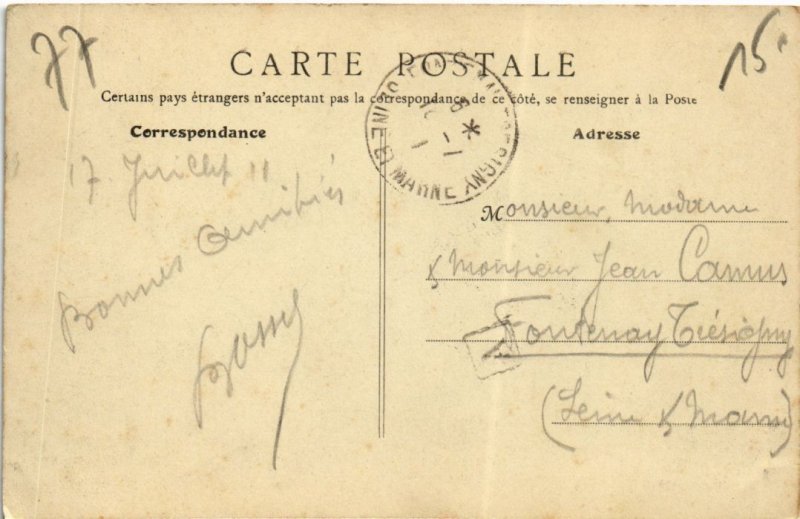 77
15
CARTE POSTALE
Certains pays étrangers n'acceptent pas la correspondance de ce côté, se renseigner à la Poste
Correspondance
Adresse
17 Juillet 11
Bonnes Amitiés
Monsieur, Madame
& Monsieur Jean Camus
Fontenay Trésigny
(Seine & Marne)
SEINE & MARNE